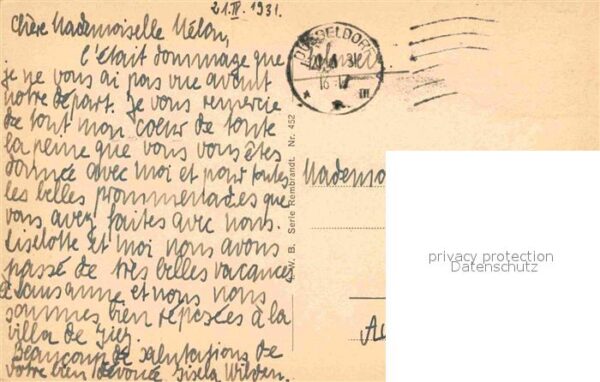 21.IV.1931.
Chère Mademoiselle Mélon,
C'était dommage que
je ne vous ai pas vue avant
notre départ. Je vous remercie
de tout mon coeur de toute
la peine que vous vous êtes
donnée avec moi et pour toutes
les belles prommenades que
vous avez faites avec nous.
Liselotte et moi nous avons
passé de très belles vacances
à Lausanne et nous nous
sommes bien reposées à la
villa de
Beaucoup de salutations de
votre bien dévouée Gisela Wilden.
DÜSSELDORF
16-17
W. B. Serie Rembrandt. Nr. 452
Mademo
privacy protection
Datenschutz